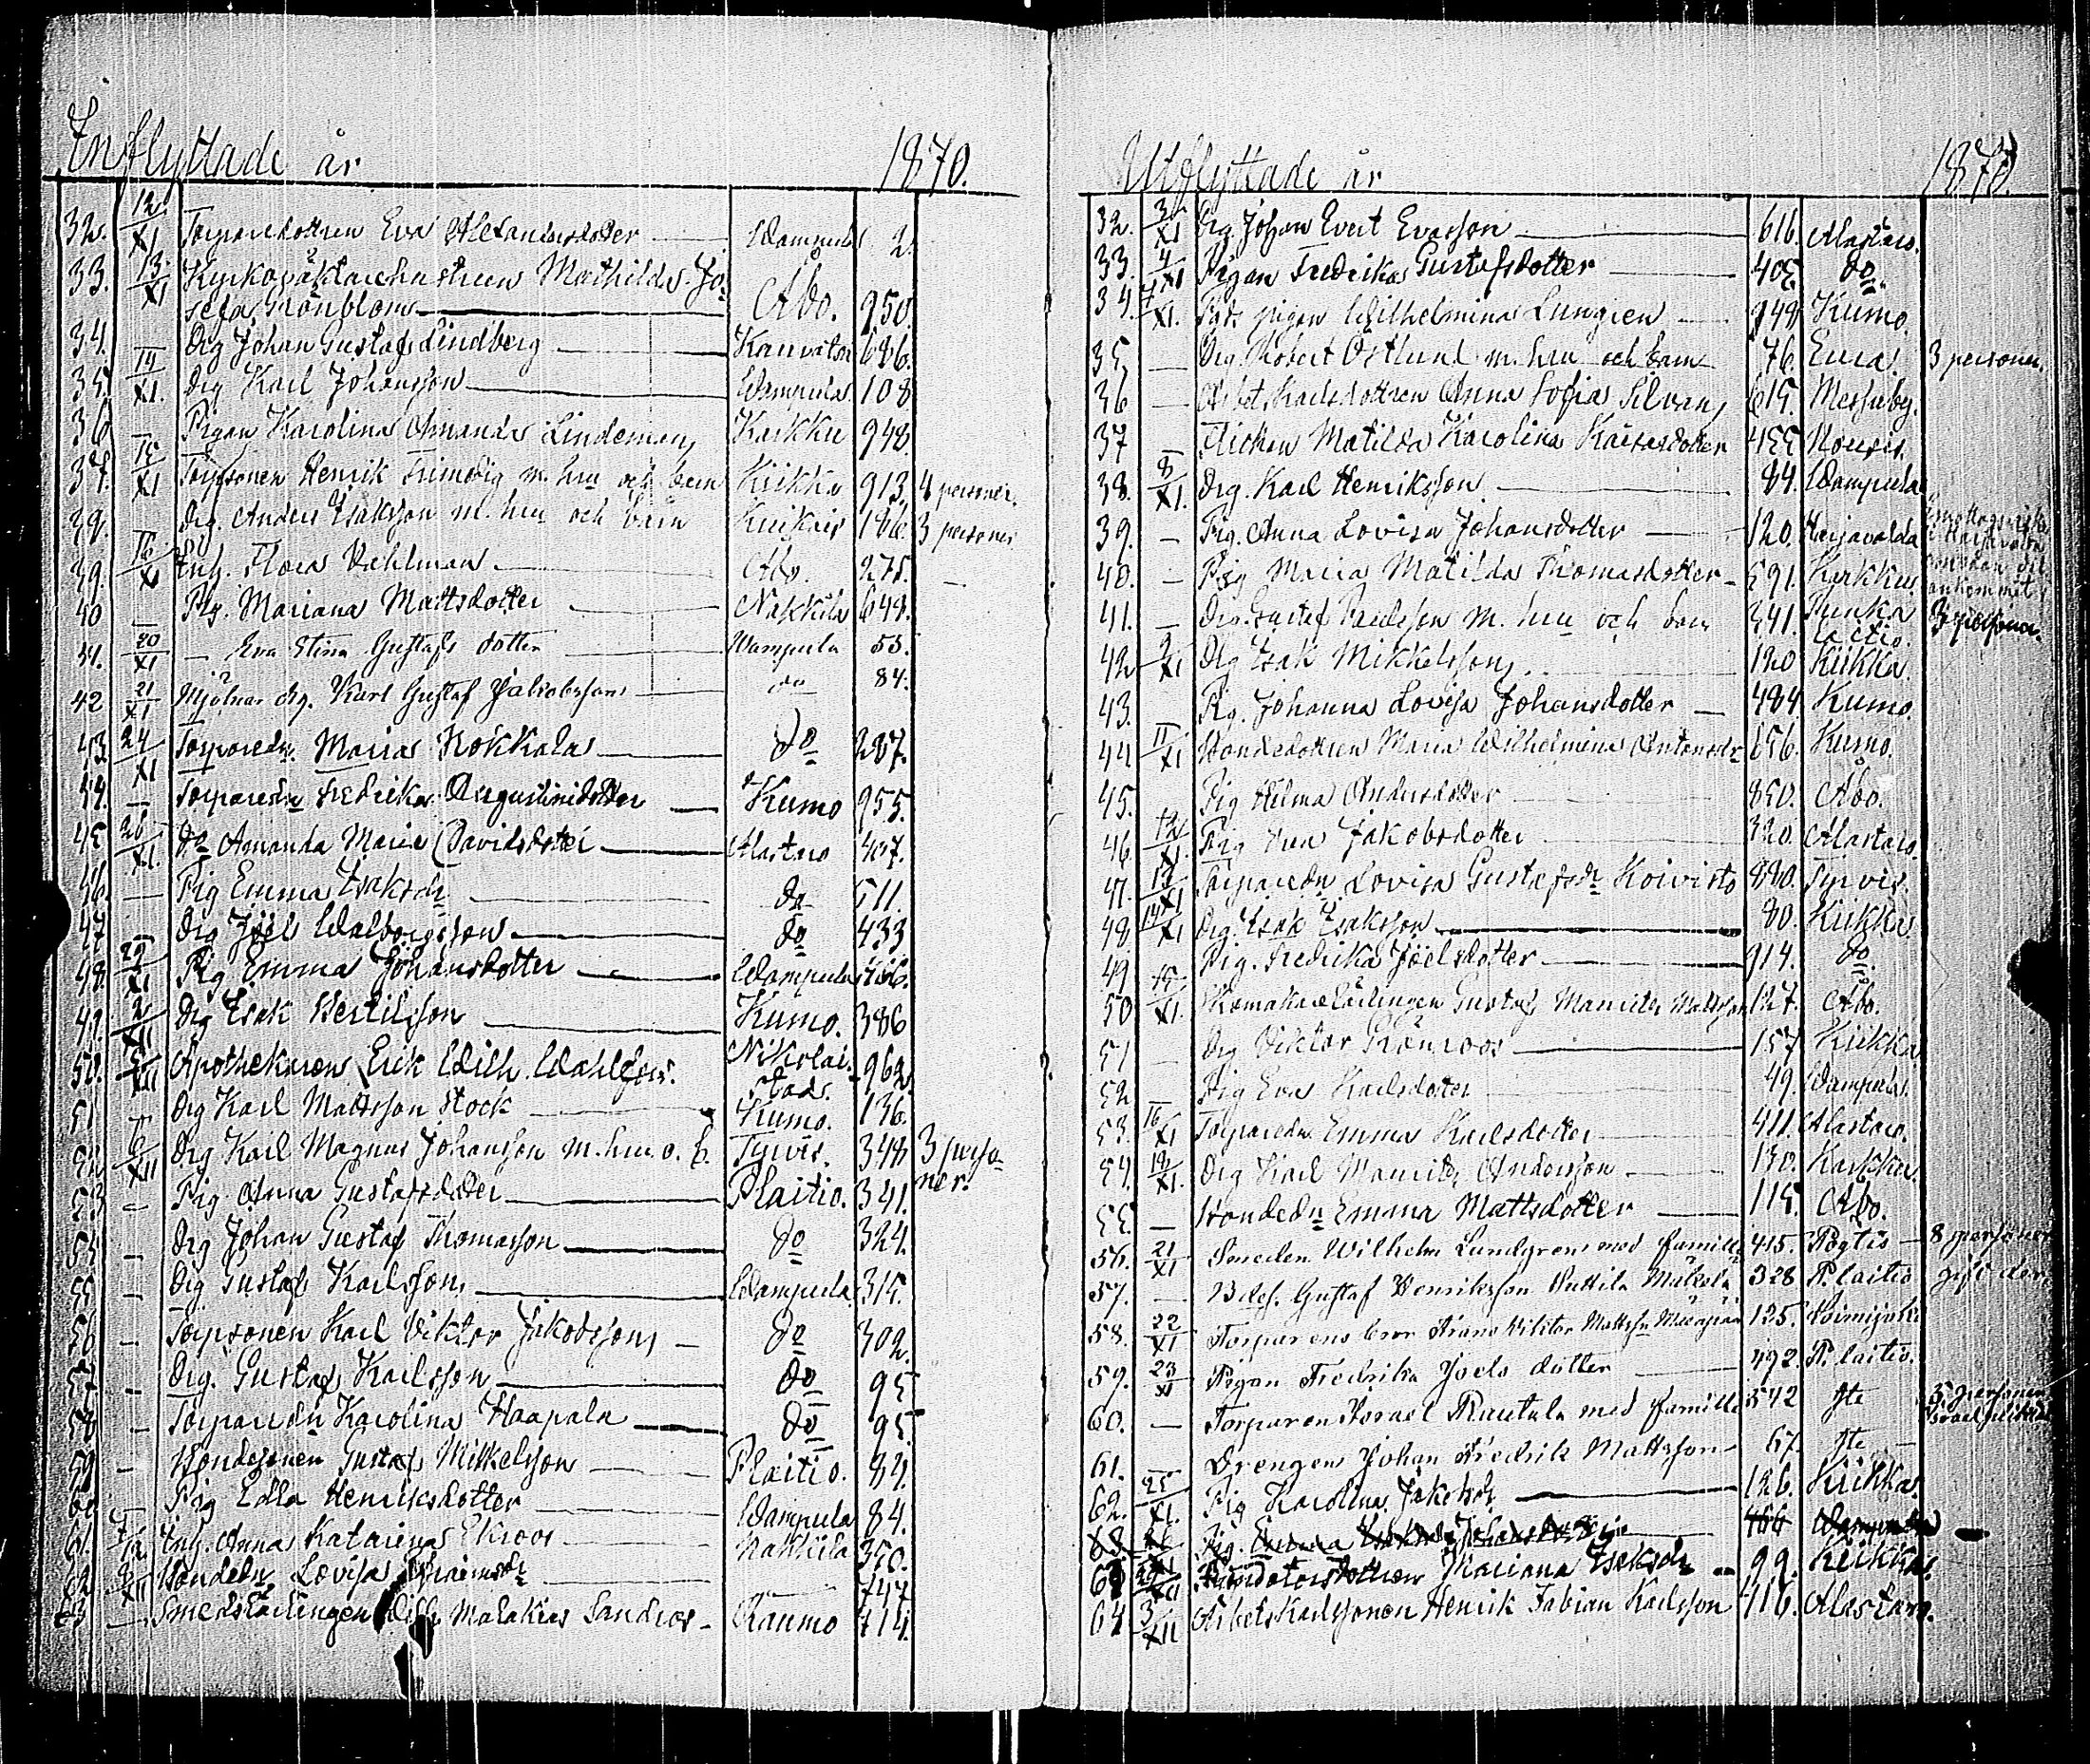 Inflyttade år 1870.
32. 12/XI Torparedottren Eva Alexandersdotter Wampula 2.
33. 13/XI Kyrkovaktarehustrun Mathilda Jo-
sefa Grönblom Åbo. 950.
34. Drg Johan Gustaf Lindberg 686.
35. 14/XI. Drg Karl Johansson Wampula 108
36 — Pigan Karolina Amanda Lindeman Karkku 948.
37. 15/XI Torpsonen Henrik m. hru och barn Kiikka 913. 4 personer.
38. — Drg. Anders Isaksson m. hru och barn 166. 3 personer
39. 16/XI Inh. Flora Dahlman Åbo. 275.
40 — Pig. Mariana Mattsdotter Nakkila 648.
41. 20/XI — Eva Stina Gustafs dotter Wampula 55.
42 21/XI Mjölnar drg. Karl Gustaf Jakobsson do 84.
43 24/XI Torparedn. Maria Kokkala do 287.
44. — Torparedn Fredrika Augustinidotter Kumo 955.
45 26/XI. do Amanda Maria Davidsdotter Alastaro 407.
46. — Pig Emma Isaksdr do 511.
47 — Drg Joel Walborgsson do 433
48. 29/XI Pig Emma Johansdotter Wampula 466.
49. 2/XII Drg Isak Bertilsson Kumo. 386
50. 5/XII Apothekaren Erik Wilh. Wahlfors. Nikolai-
stad. 962
51 — Drg Karl Mattsson Stock Kumo. 136.
52 6/XII Drg Karl Magnus Johansson m. hru. o. b. Tyrvis. 348 3 perso-
ner.
53 — Pig Anna Gustafsdotter Plaitio. 341.
54 — Drg Johan Gustaf Thomasson do 324.
55 — Drg Gustaf Karlsson Wampula 315.
56 — Torpsonen Karl Viktor Jakobsson do 302.
57 — Drg. Gustaf Karlsson do 95
58 — Torparedn Karolina Haapala do 95.
59 — Bondesonen Gustaf Mikkelsson Plaitio. 84.
60 — Pig Edla Henriksdotter Wampula 84.
61. 7/12 Inh. Anna Katarina Ekroos Nakkila 350.
62 9/XII Bondedn Lovisa — 747.
63 — Smedslärlingen Malakias Sandros Raumo 414.
Utflyttade år 1870.
32. 3/XI Drg. Johan Evert Evasson 616. Alastaro.
33. 4/XI Pigan Fredrika Gustafsdotter 405 do.
34. 7/XI. pigan Wilhelmina Lungren 949 Kumo.
35 — Drg. Robert Östlund m. hru och barn 76. Eura. 3 personer.
36 — Arbet.karlsdottren Anna Sofia Silvan 615. Messuby.
37 — Flickan Matilda Karolina Kaisasdotter 455 Nousis.
38. 8/XI. Drg. Karl Henriksson 84. Wampula
39. — Pig. Anna Lovisa Johansdotter 120. Harjavalda
40. — Pig Maria Matilda Thomasdotter 591. Karkku.
ankommit
41. — Drg. Gustaf Paulsson m. hru och barn 341. Punka
laitio. 3 personer.
42 9/XI Drg Isak Mikkelsson 120 Kiikka.
43. — Pig. Johanna Lovisa Johansdotter 484 Kumo.
44 11/XI Bondedottren Maria Wilhelmina Antonsdr 656. Kumo.
45. Pig Hilma Andersdotter 850. Åbo.
46. 12/XI. Pig Jakobsdotter 320. Alastaro.
47. 13/XI Torparedn Lovisa Gustafsdr Koivisto 880. Tyrvis.
48 14/XI Drg. Isak Isaksson 80. Kiikka
49 — Pig. Fredrika Joelsdotter 914. do.
50 15/XI. Skomakarelärlingen Gustaf Mauritz Mattsson 127. Åbo.
51 — Drg Viktor Grönroos 157 Kiikka
52 — Pig Eva Karlsdotter 49. Wampula.
53. 16/XI Torparedn Emma Karlsdotter 411. Alastaro.
54. 19/XI. Drg Karl Mauritz Andersson 130. Karkku.
55 — Bondedn Emma Mattsdotter 115. Åbo.
56. 21/XI Smeden Wilhelm Lundgren med familj 415. Pöytis 8 personer
57. — Gustaf Henriksson Puttila 328 P. laitio gift der
58. 22/XI Torparens bror Frans Viktor Mattsson 125. Loimijoki
59. 23/XI Pigan Fredrika Joels dotter 492. P. laitio.
60. — Torparen Israel Rautala med familj 542 dte 5 personer
61. — Drengen Johan Fredrik Mattsson 67. dte
62. 25/XI. Pig Karolina Jakobsdr 126. Kiikka.
63. 26/XI Pig. Emma Johansdotter 466 Wampula
63 XII Mariana Isaksdr 99. Kiikka.
64 3/XII Arbetskarlssonen Henrik Fabian Karlsson 716. Alastaro.